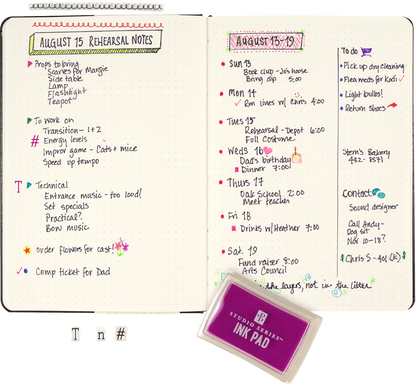 AUGUST 15 REHEARSAL NOTES
Props to bring
Scarves for Margie
Side table
Lamp
Flashlight
Teapot
To work on
Transition - 1+2
# Energy levels
Improv game - Cats + mice
Speed up tempo
T Technical
Entrance music - too loud!
Set specials
Practical?
Bow music
order flowers for cast!
Comp ticket for Dad
T n #
AUGUST 13-19
Sun 13
Book club - Jo's house
Bring dip 5:00
Mon 14
Run lines w/ Chris 4:00
Tues 15
Rehearsal - Depot 6:00
Full Costume
Weds 16
Dad's birthday
Dinner 7:00
Thurs 17
Oak School 2:00
Meet teacher
Fri 18
Drinks w/Heather 7:00
Sat. 19
Fund raiser 8:00
Arts Council
in the layers, not in the litter
To do
Pick up dry cleaning
Flea meds for Kadi
Light bulbs!
Return shoes
Stern's Bakery
Contact
Sound designer
Call Andy -
Dog sit
Nov 10-18?
STUDIO SERIES
INK PAD